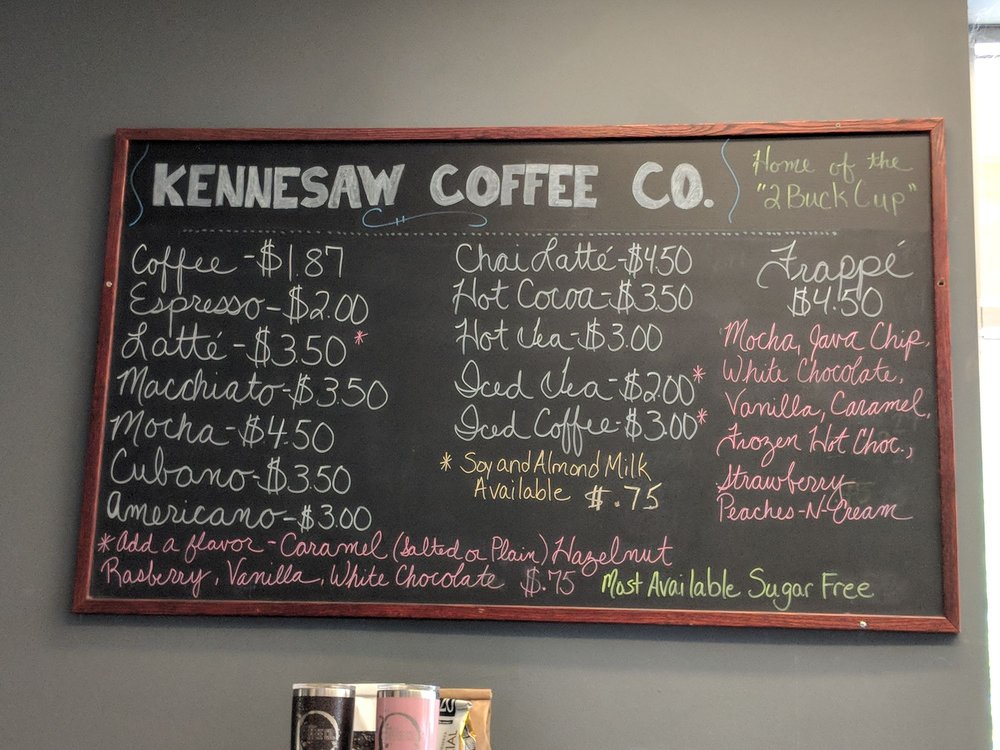 KENNESAW COFFEE CO.
Home of the
"2 Buck Cup"
Coffee - $1.87
Espresso - $2.00
Latté - $3.50 *
Macchiato - $3.50
Mocha - $4.50
Cubano - $3.50
Americano - $3.00
Chai Latté - $4.50
Hot Cocoa - $3.50
Hot Tea - $3.00
Iced Tea - $2.00 *
Iced Coffee - $3.00 *
* Soy and Almond Milk
Available $.75
Frappé
$4.50
Mocha, Java Chip,
White Chocolate,
Vanilla, Caramel,
Frozen Hot Choc.,
Strawberry
Peaches-N-Cream
* Add a flavor - Caramel (Salted or Plain) Hazelnut
Rasberry, Vanilla, White Chocolate $.75
Most Available Sugar Free